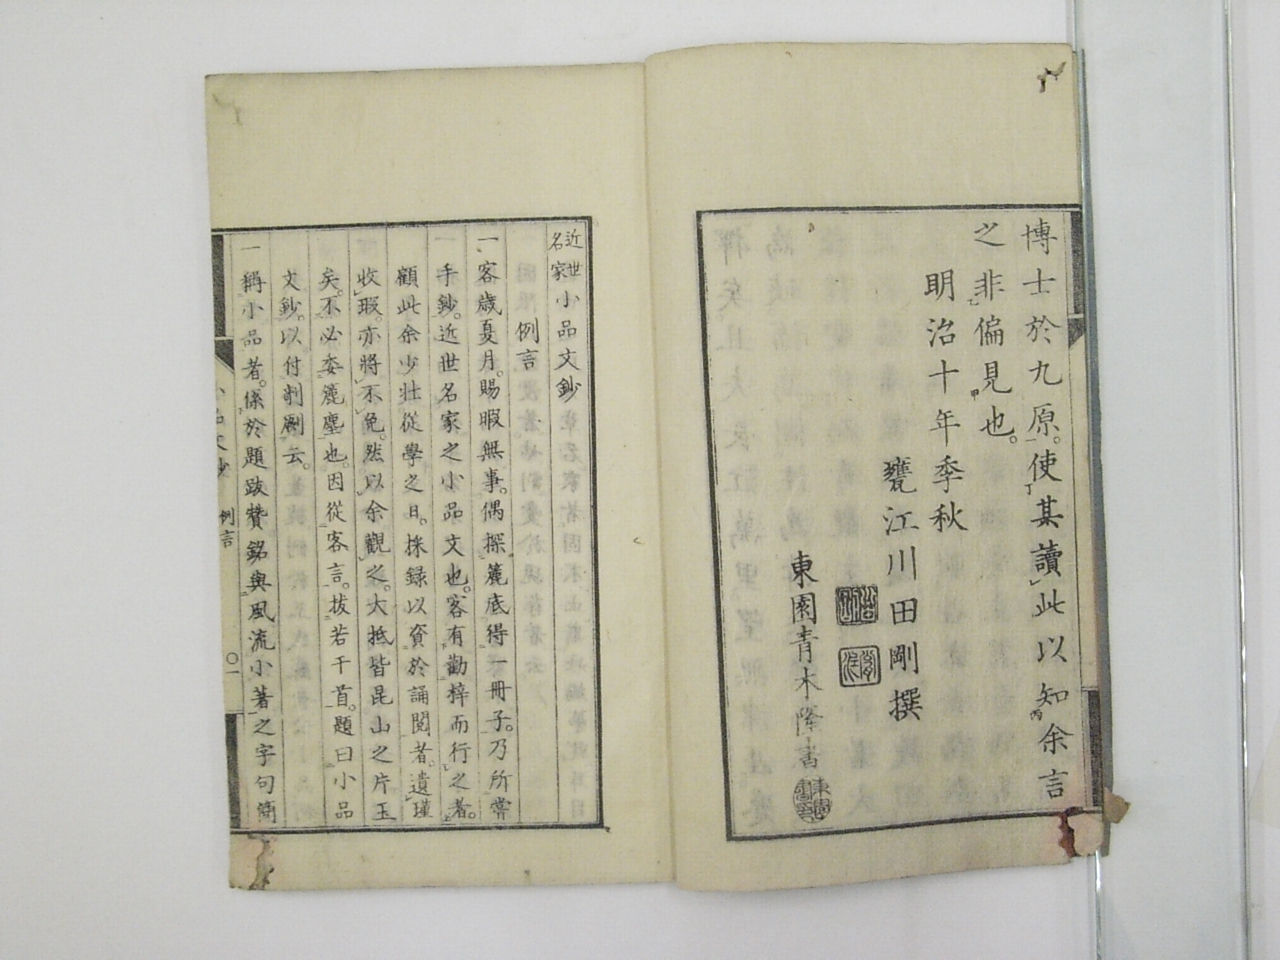 博士於九原。使某讀此以知余言
之非偏見也。
明治十年季秋
甕江川田剛撰
東園青木隆書
近世名家小品文鈔
例言
一客歳夏月。賜暇無事。偶探簏底得一冊子。乃所嘗
手鈔。近世名家之小品文也。客有勸梓而行之者。
顧此余少壯從學之日。抹録以資於誦閲者。遺瑾
收瑕。亦將不免。然以余觀之。大抵皆昆山之片玉
矣。不必委簏塵也。因從客言。拔若干首。題曰小品
文鈔。以付剞劂云。
一稱小品者。係於題跋贊銘與風流小著之字句簡
小品文鈔 例言 〇一